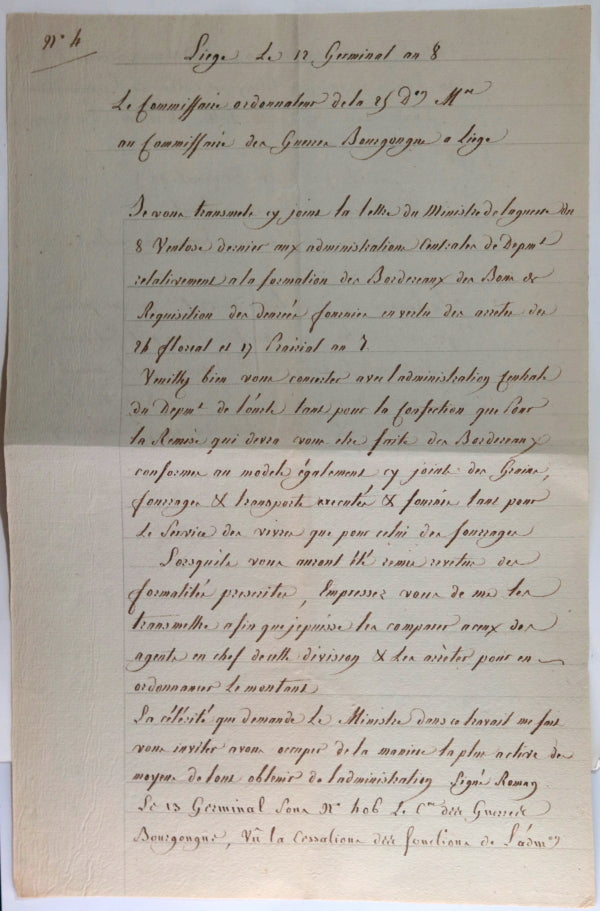 N° 4
Liege Le 12 Germinal an 8
Le Commissaire ordonnateur de la 25 Don Mre
au Commissaire des Guerres Bourgongne a Liège
Je vous transmets cy joint la lettre du Ministre de laguerre du
8 Ventose dernier aux administrations Centrales de Depmt
relativement a la formation des Bordereaux des Bons de
Requisition des denrées fournies en vertu des arretes des
24 floreal et 17 Prairial an 7.
Veuillez bien vous concerter avec l'administration Centrale
du Depmt de l'ourte tant pour la Confection que Pour
la Remise qui devra vous etre faite des Bordereaux
conformes au modele également cy joint des Grains,
fourrages & transports executés & fournis tant pour
Le Service des vivres que pour celui des fourrages
Lorsqu'ils vous auront été remis revetus des
formalités prescrites, Empressez vous de me les
transmettre afin que jepuisse les comparer aceux des
agents en chef de cette division & Les arrèter pour en
ordonnancer Le montant
La célérité que demande Le Ministre dans ce travail me fait
vous inviter avous occuper de la maniere la plus active des
moyens de lous obtenir de l'administration Signé Romey
Le 13 Germinal Sous N° 406 Le Cre des Guerres
Bourgongne, Vû la Cessations des fonctions de L'admon